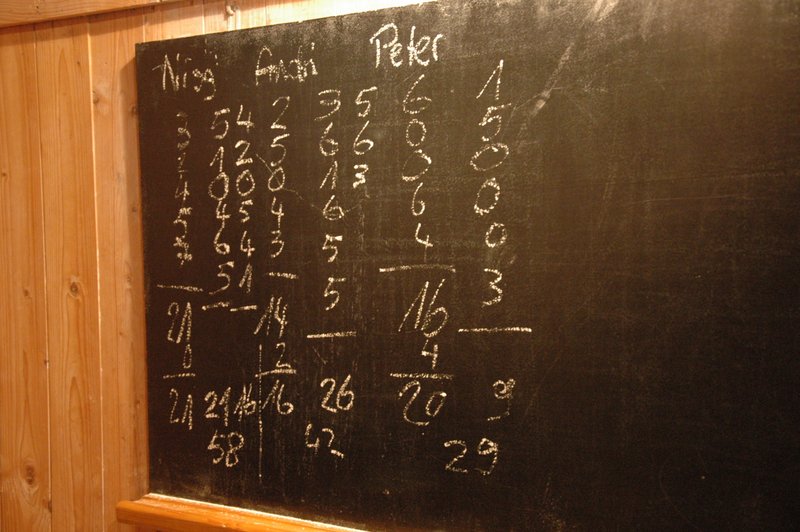 Nigg Andi Peter
3 5 4 2 3 5 6 1
1 2 5 6 6 0 5
4 0 0 0 1 3 0 0
5 4 5 4 6 6 0
6 4 3 5 4 0
5 1 5 3
21 14 16
0 2 4
21 21 16 16 26 20 9
58 42 29